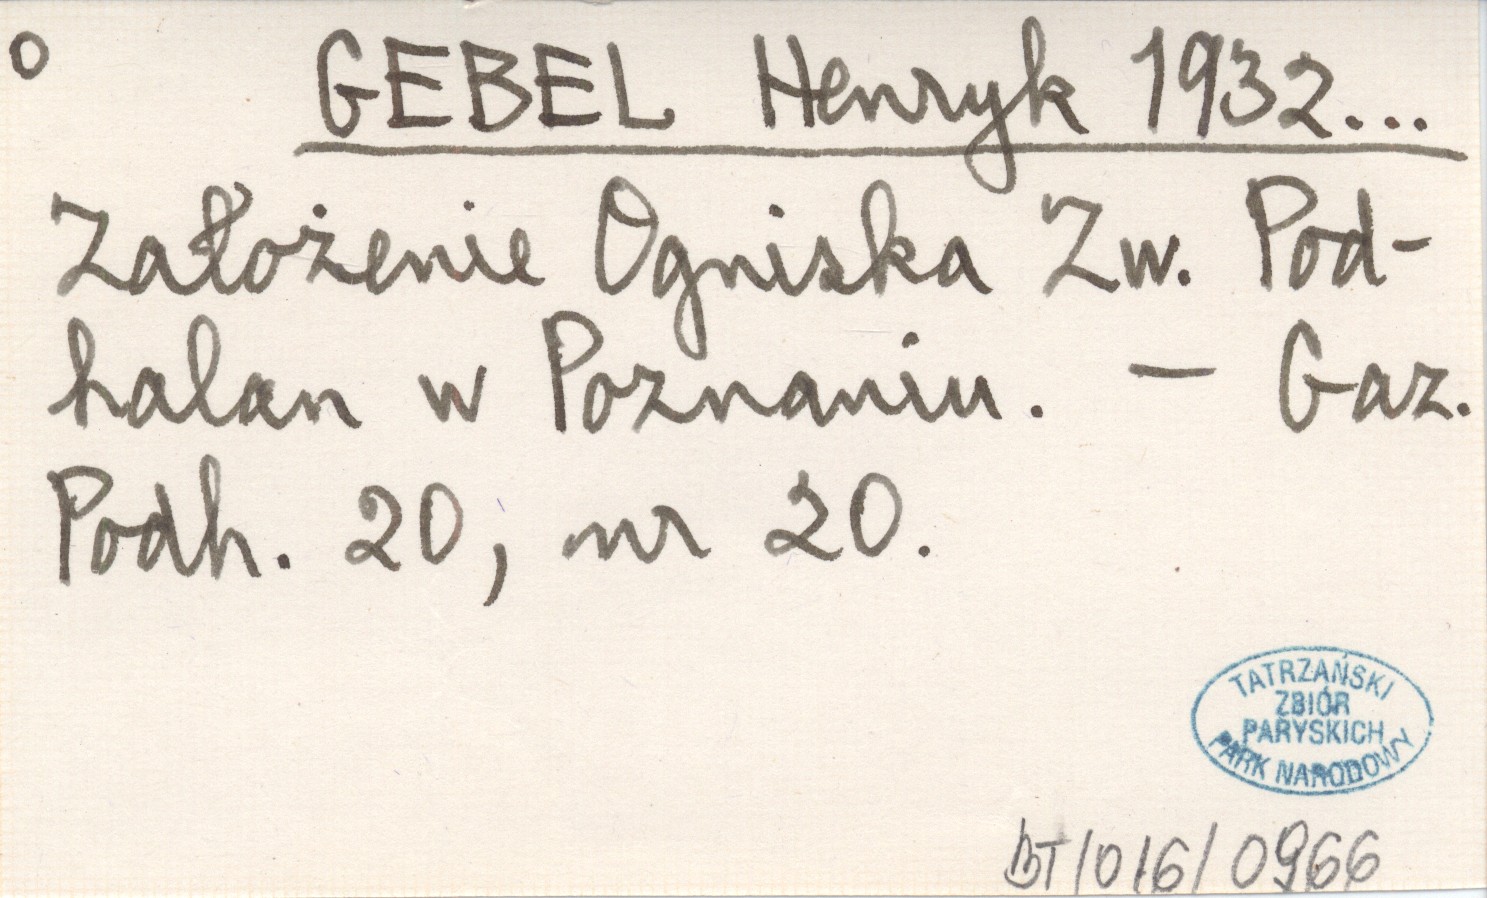 o GEBEL Henryk 1932...
Założenie Ogniska Zw. Pod-
halan w Poznaniu. — Gaz.
Podh. 20, nr 20.
TATRZAŃSKI
ZBIÓR
PARYSKICH
PARK NARODOWY
BT/016/0966